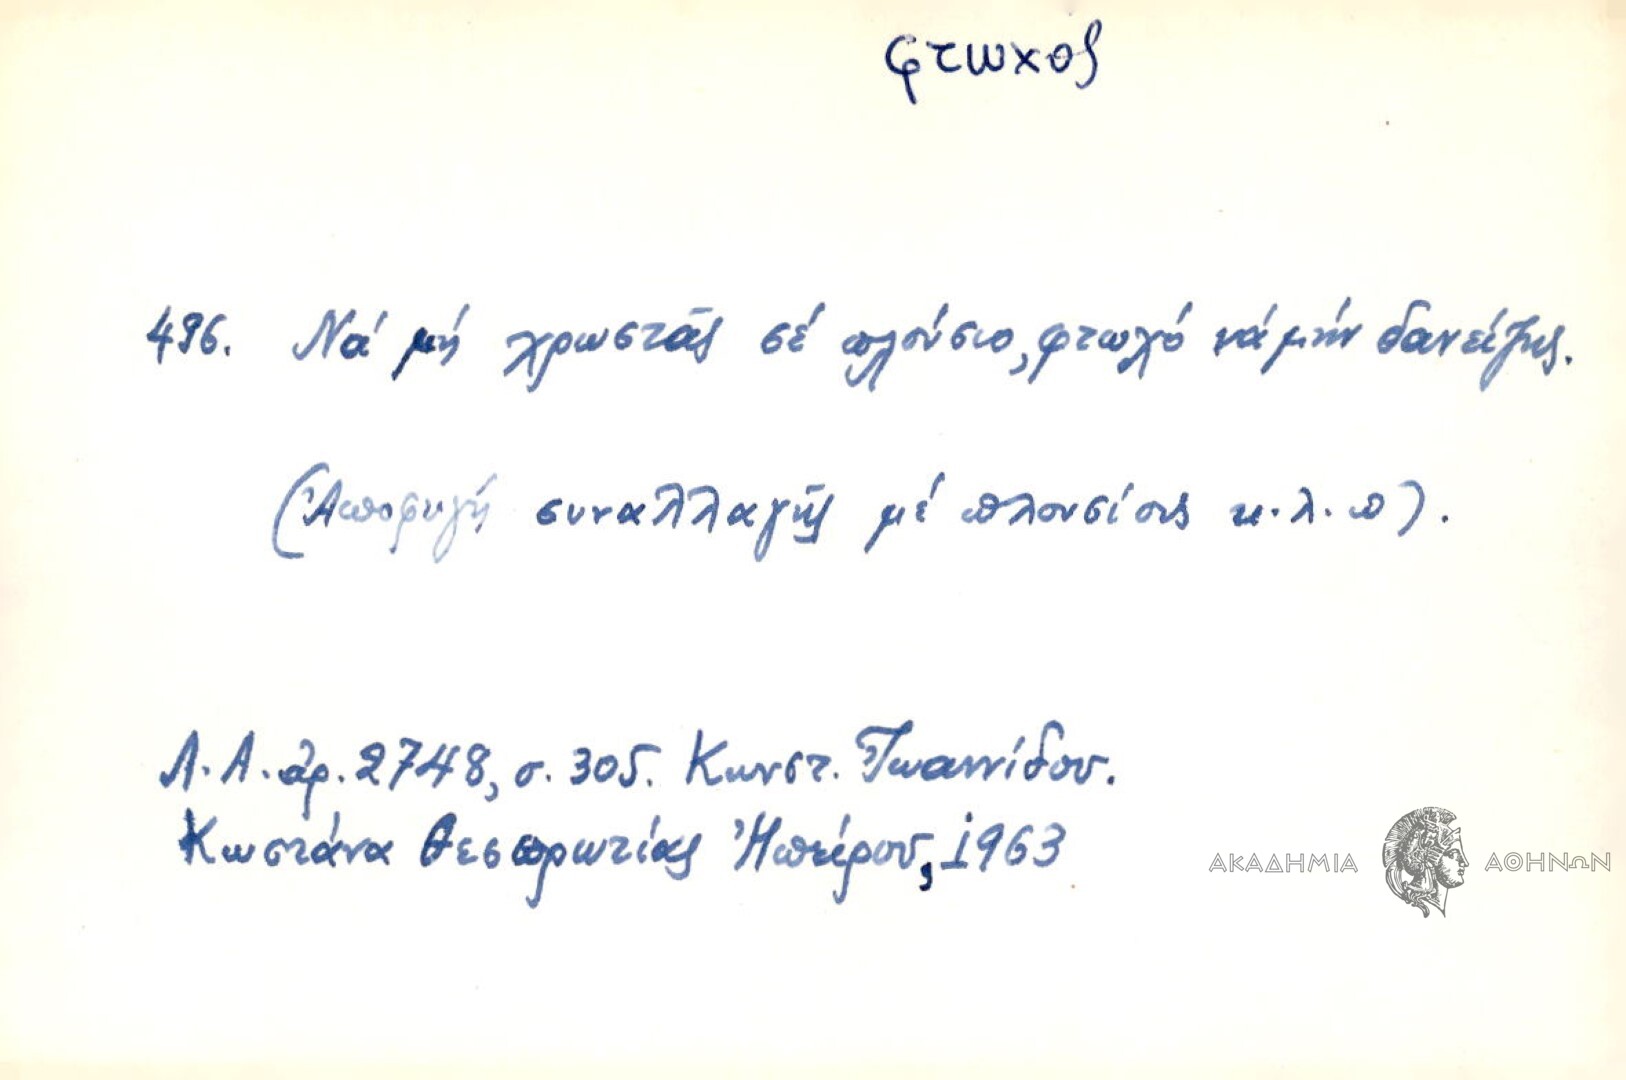 φτωχος
496. Νά μή χρωστᾶς σέ πλούσιο, φτωχό νά μήν δανείζης.
(Ἀποφυγή συναλλαγῆς μέ πλουσίους κ.λ.π).
Λ.Α. ἀρ. 2748, σ. 305. Κωνστ. Ἰωαννίδου.
Κωστάνα Θεσπρωτίας Ἠπείρου, 1963
ΑΚΑΔΗΜΙΑ ΑΘΗΝΩΝ